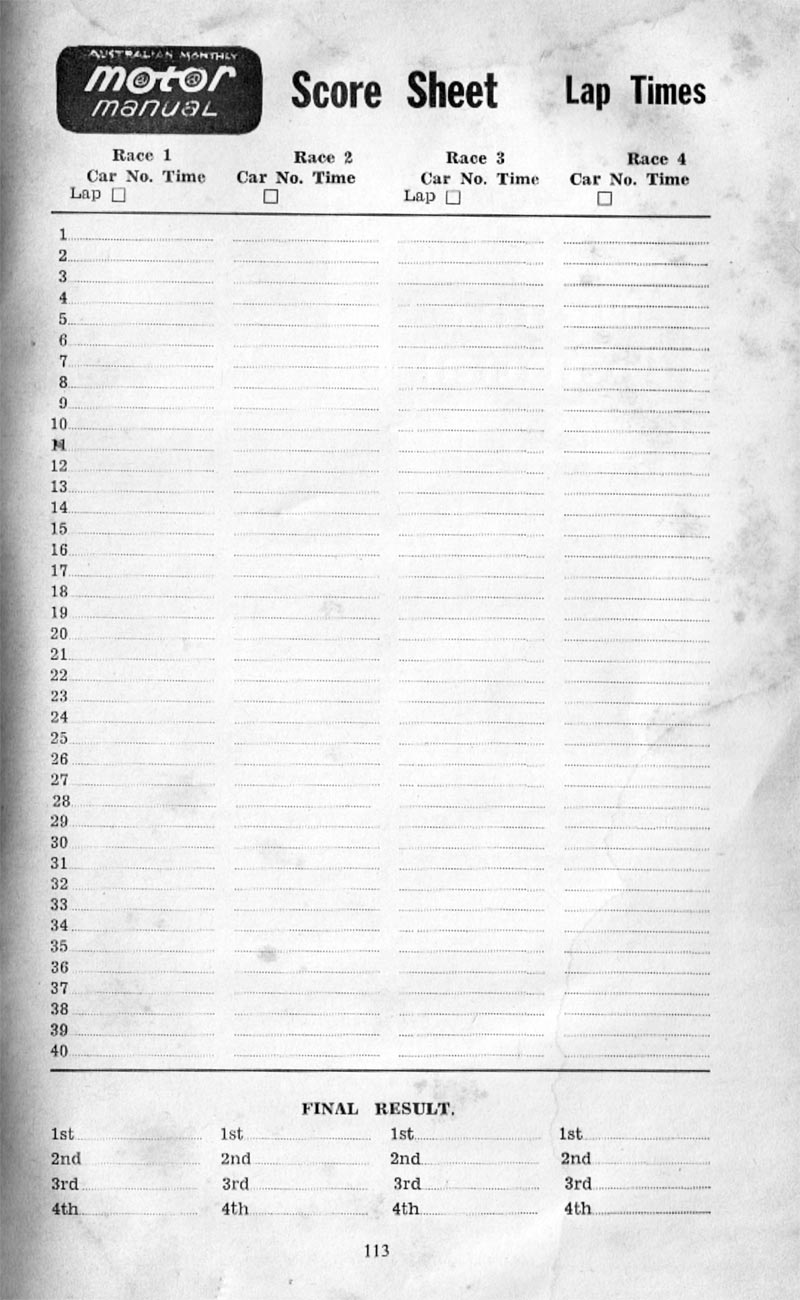 AUSTRALIAN MONTHLY
motor
manual
Score Sheet Lap Times
Race 1 Race 2 Race 3 Race 4
Car No. Time Car No. Time Car No. Time Car No. Time
Lap Lap
1
2
3
4
5
6
7
8
9
10
11
12
13
14
15
16
17
18
19
20
21
22
23
24
25
26
27
28
29
30
31
32
33
34
35
36
37
38
39
40
FINAL RESULT.
1st 1st 1st 1st
2nd 2nd 2nd 2nd
3rd 3rd 3rd 3rd
4th 4th 4th 4th
113